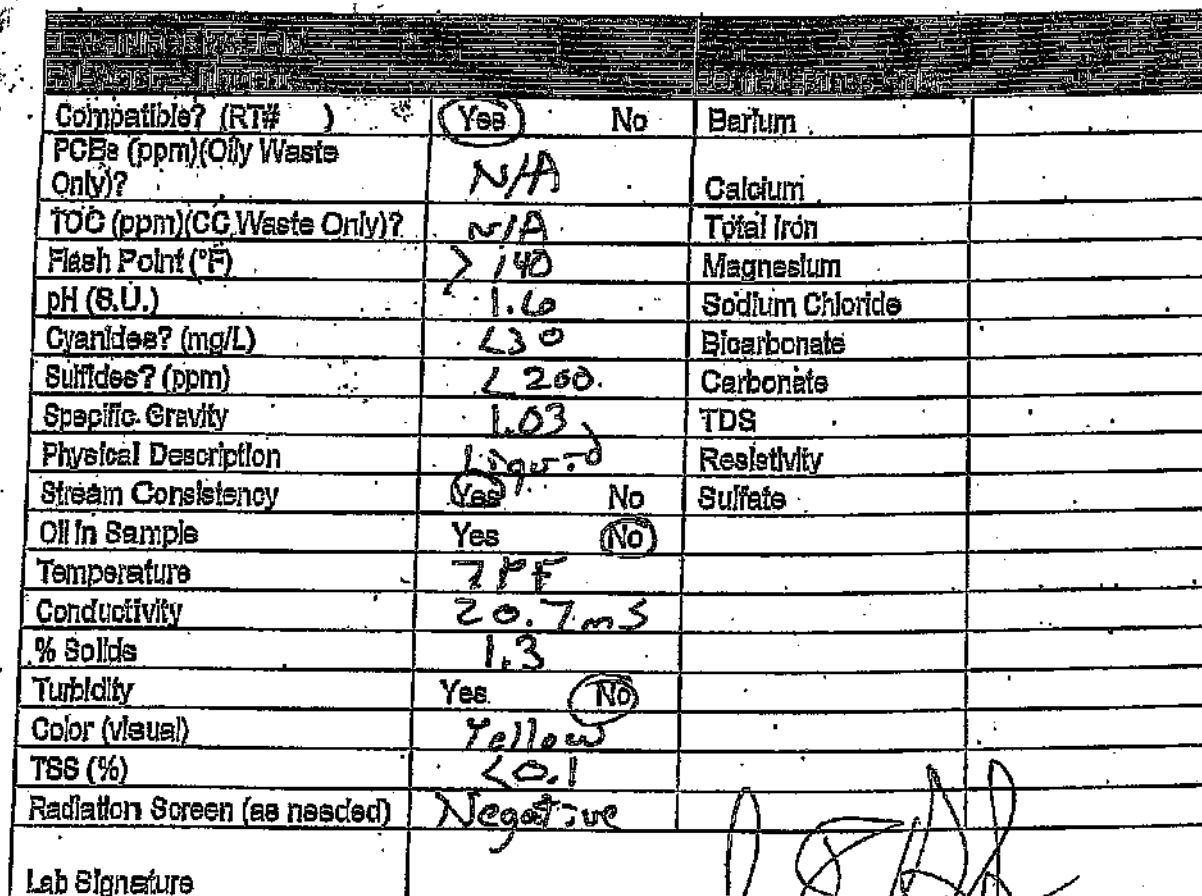 Compatible? (RT# ) Yes No Barium
PCBs (ppm)(Oily Waste
Only)? N/A Calcium
TOC (ppm)(CC Waste Only)? N/A Total Iron
Flash Point (°F) > 140 Magnesium
pH (S.U.) 1.6 Sodium Chloride
Cyanides? (mg/L) <30 Bicarbonate
Sulfides? (ppm) < 200 Carbonate
Specific Gravity 1.03 TDS
Physical Description Liquid Resistivity
Stream Consistency Yes No Sulfate
Oil in Sample Yes No
Temperature
Conductivity 20.7 mS
% Solids 1.3
Turbidity Yes No
Color (visual) Yellow
TSS (%) <0.1
Radiation Screen (as needed) Negative
Lab Signature